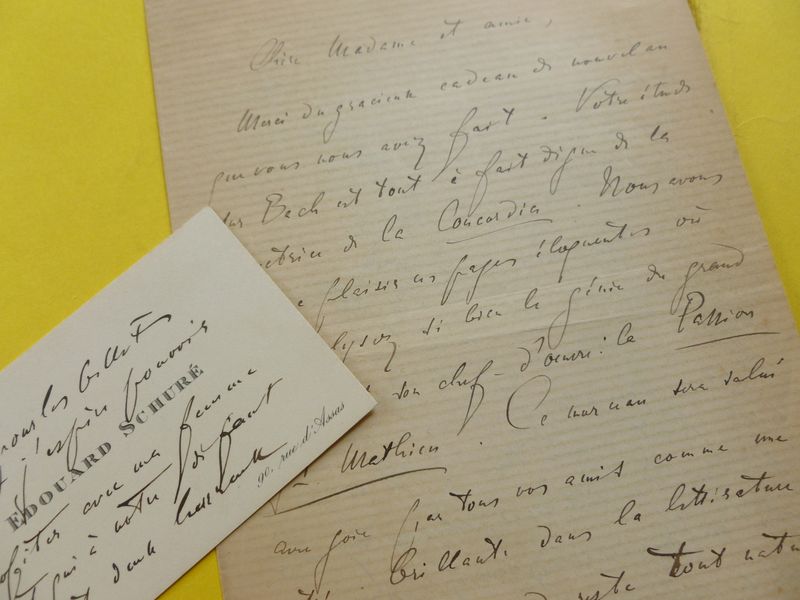 Chère Madame et amie,
Merci du gracieux cadeau de nouvel an
que vous nous avez fait. Votre étude
sur Bach est tout à fait digne de la
Concordia. Nous avons
plaisir ces pages éloquentes où
si bien le génie du grand
son chef-d'œuvre: la Passion
Mathieu. Ce morceau sera salué
avec joie par tous vos amis comme une
brillante dans la littérature
reste tout
pour les billets
j'espère pouvoir
EDOUARD SCHURÉ
avec ma femme
à votre
90, rue d'Assas